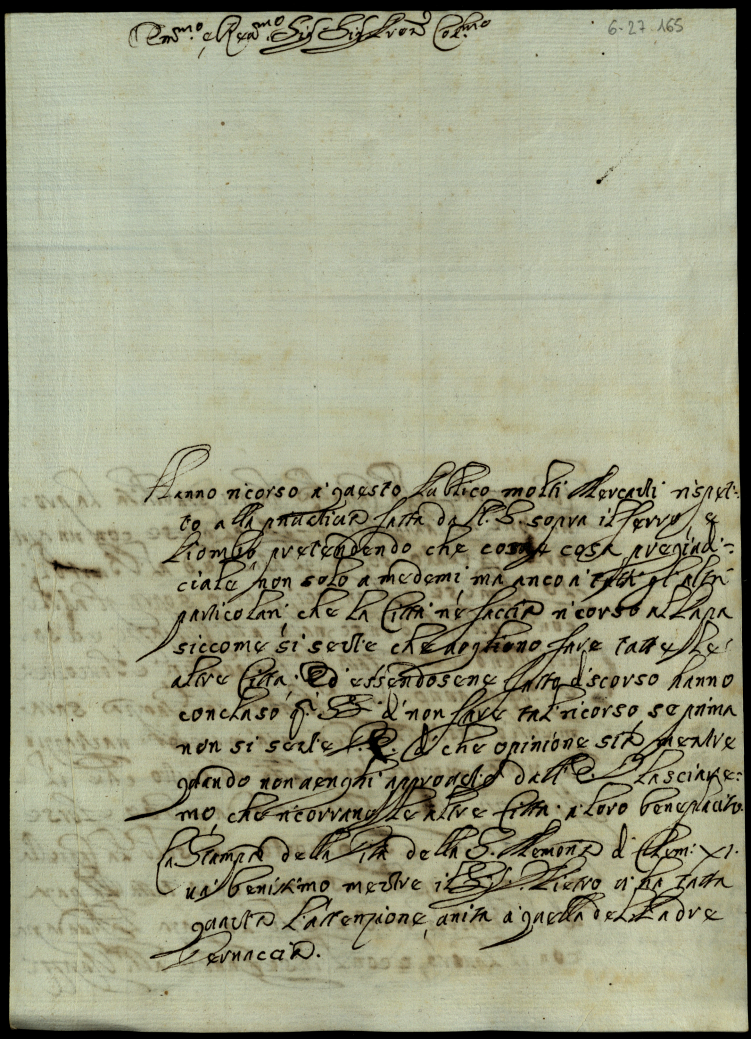 Em.mo e Rev.mo Sig.r Sig.r Pron Col.mo
6-27-165
Hanno ricorso a questo Publico molti Mercanti rispet-
to alla privativa fatta da N. S. sopra il ferro, e
Piombo pretendendo che cosa pregiudi-
ciale non solo a medemi ma anco a tutti gl'altri
particolari, che la Città ne faccia ricorso al Papa
siccome si sente che vogliono fare tutte le
altre Città. Ed essendosene fatto discorso hanno
concluso q.i SS.i di non fare tal ricorso se prima
non si sente V. E. di che opinione sia mentre
quando non venghi approvato dall'E. V. lasciare-
mo che ricorrano le altre Città a loro beneplacito.
La Stampa della Vita della S. Memoria di Clem: XI.
và benissimo mentre il Sig.r Pietro vi ha tutta
quanta l'attenzione, unita a quella del Padre
Vernaccia.